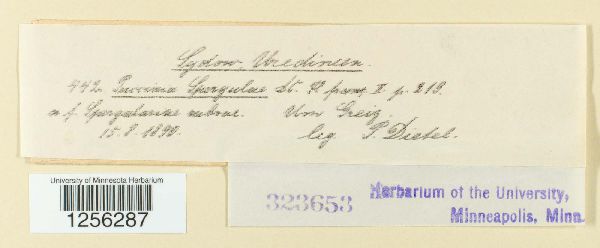 Sydow, Uredineen.
442. Puccinia Spergulae DC. P. franz. II p. 219.
a. f. Spergulariae rubrae. Um Greiz.
15.8.1890. leg P. Dietel.
University of Minnesota Herbarium
1256287
323653
Herbarium of the University,
Minneapolis, Minn.